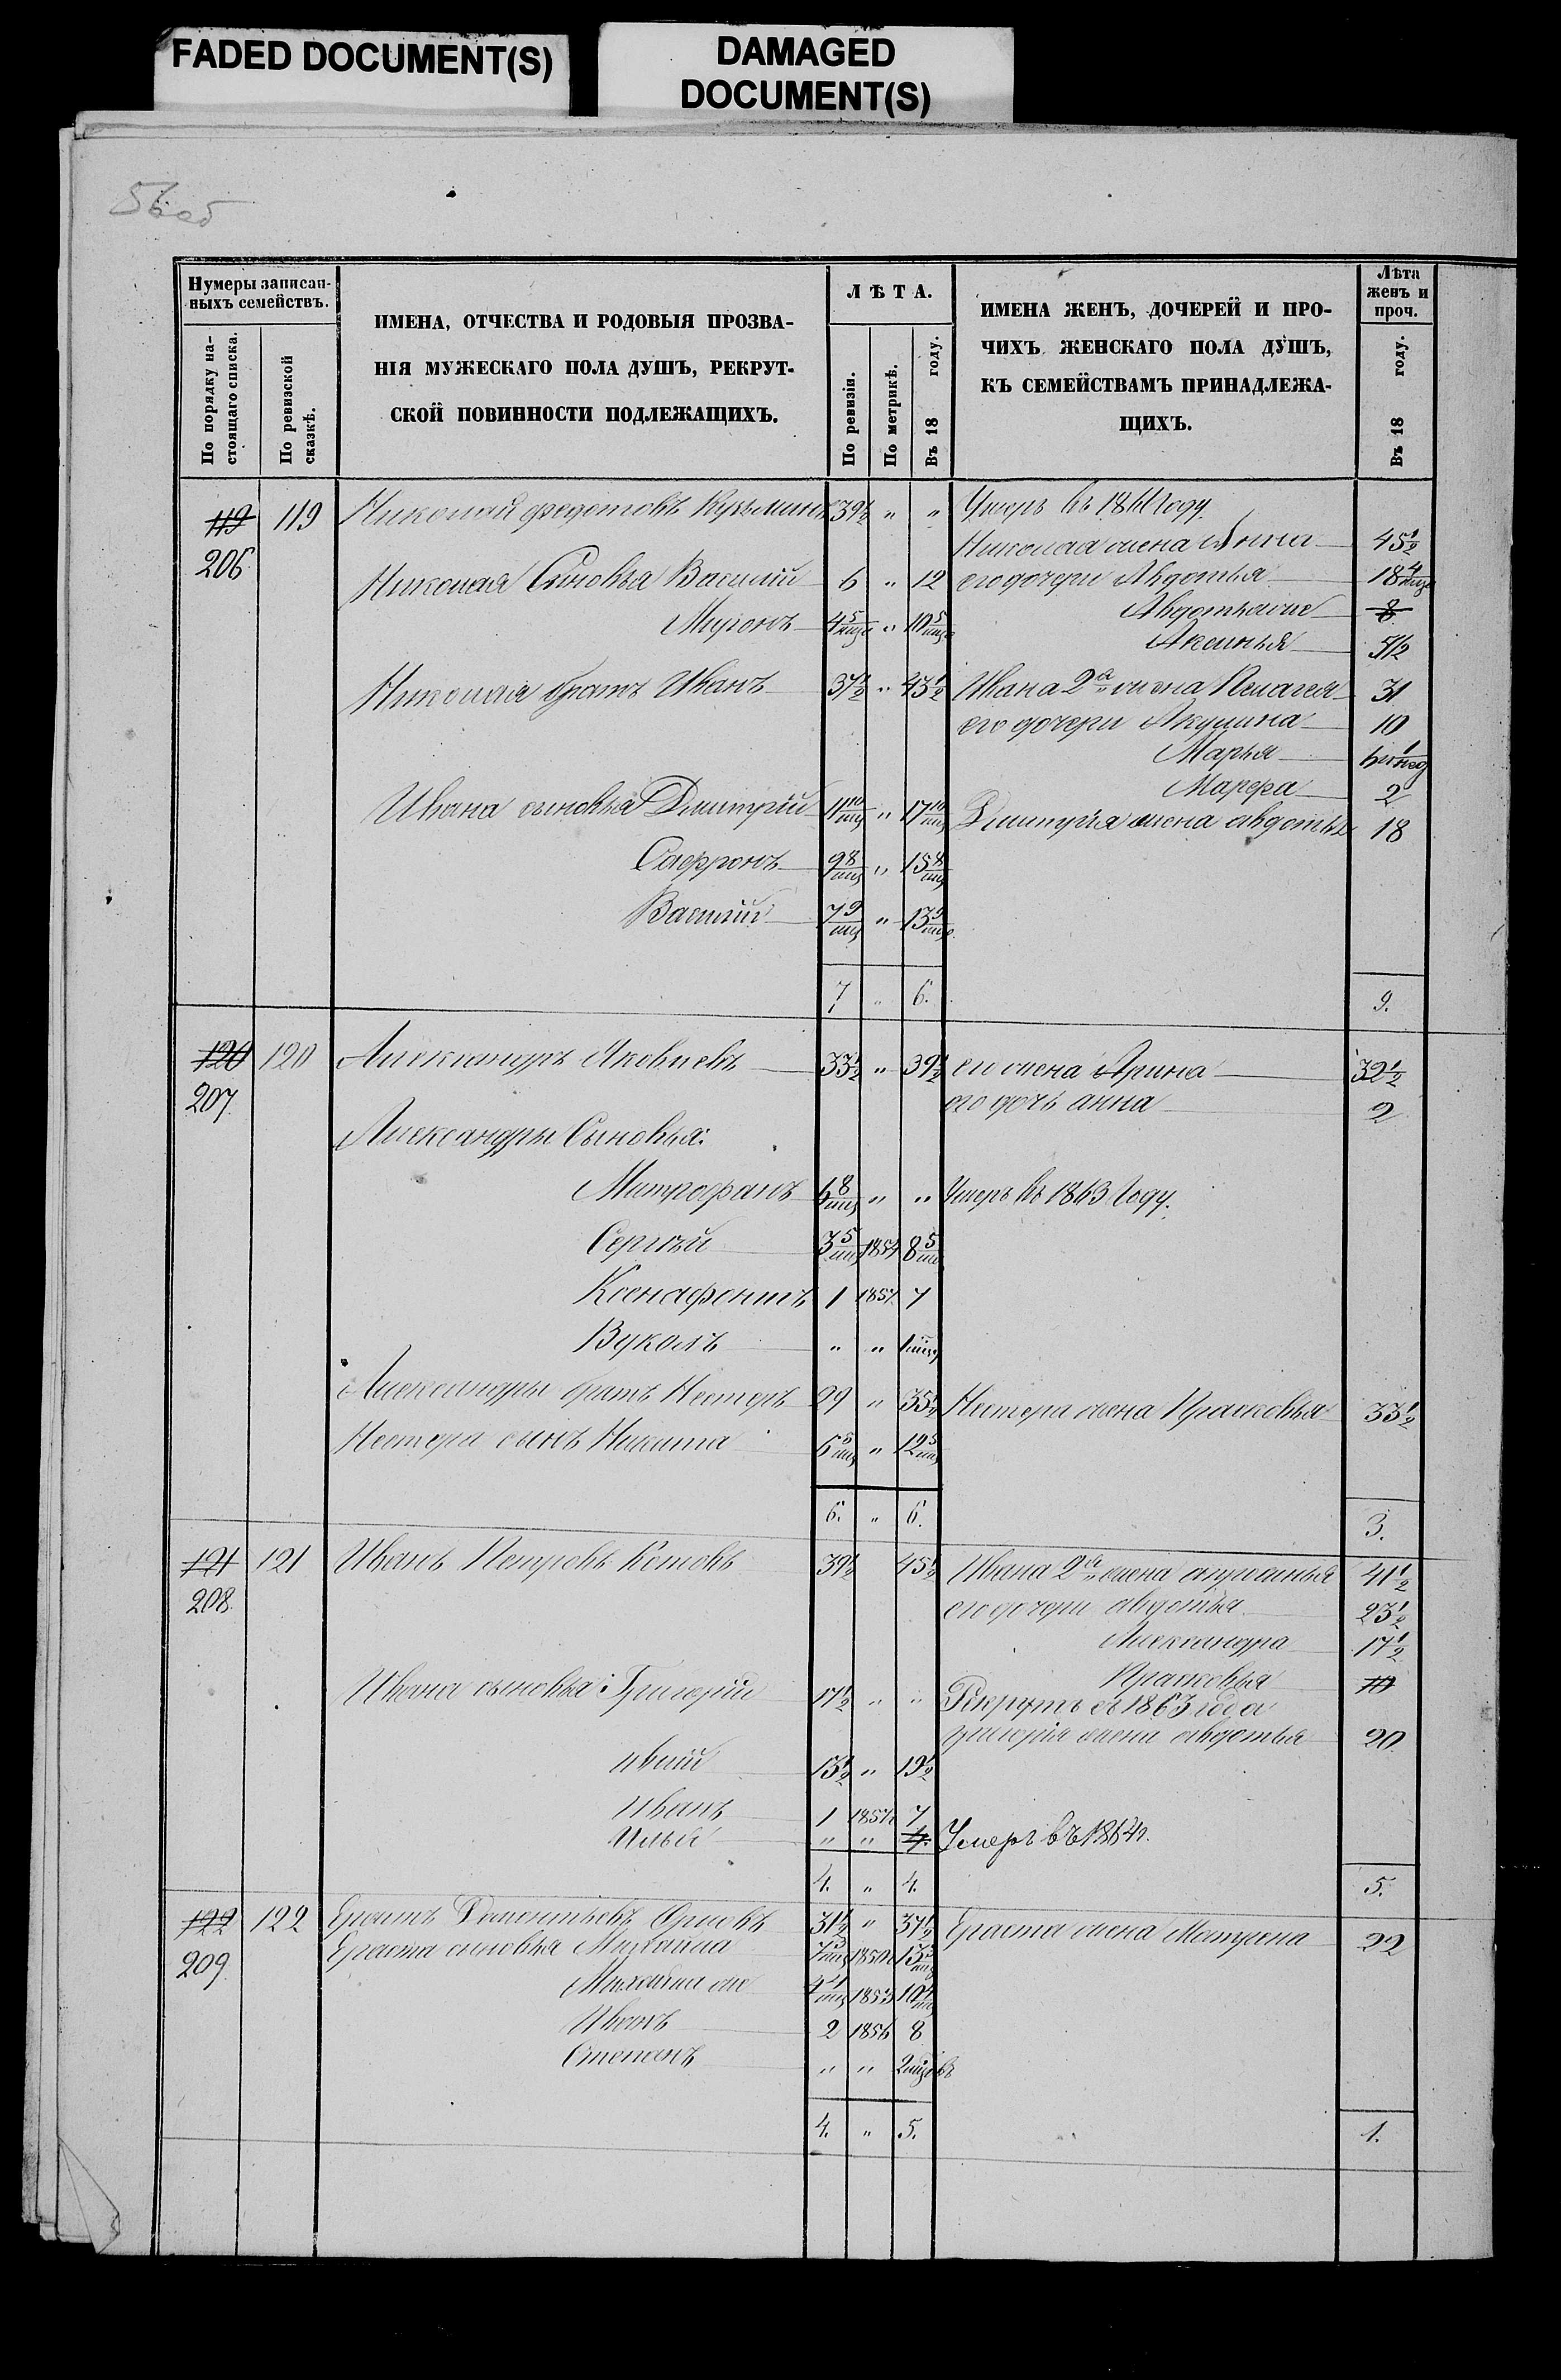 FADED DOCUMENT(S)
DAMAGED
DOCUMENT(S)
56об
Нумеры записан-
ныхъ семействъ.
По порядку на-
стоящаго списка.
По ревизской
сказкѣ.
ИМЕНА, ОТЧЕСТВА И РОДОВЫЯ ПРОЗВА-
НІЯ МУЖЕСКАГО ПОЛА ДУШЪ, РЕКРУТ-
СКОЙ ПОВИННОСТИ ПОДЛЕЖАЩИХЪ.
ЛѢТА.
По ревизіи.
По метрикѣ.
Въ 18 году.
ИМЕНА ЖЕНЪ, ДОЧЕРЕЙ И ПРО-
ЧИХЪ ЖЕНСКАГО ПОЛА ДУШЪ,
КЪ СЕМЕЙСТВАМЪ ПРИНАДЛЕЖА-
ЩИХЪ.
Лѣта
женъ и
проч.
Въ 18 году.
119 119 Николай Федотовъ Кузьминъ 39½ " " Умеръ въ 1861 году.
206 Николая жена Анна 45½
Николая Сыновья Василій 6 " 12 его дочери Авдотья 18 4/мцс
Авдотья же 8
Миронъ 4 5/мцс " 10 5/мцс Аксинья 5½
Николая братъ Иванъ 37½ " 43½ Ивана 2я жена Пелагея 31
его дочери Акулина 10
Марья
Марфа 2
Ивана сыновья Дмитрій 11 10/мц " 17 10/мц Дмитрія жена авдотья 18
Сафронъ 9 8/мц " 15 8/мц
Василій 7 9/мц " 13 9/мцс
7 " 6. 9.
120 120 Александръ Яковлевъ 33½ " 39½ его жена Арина 32½
207. его дочь анна 2
Александры Сыновья:
Митрофанъ 6 8/мц " " Умеръ въ 1863 году.
Сергѣй 3 5/мц 1854 8 5/мц
Ксенафонтъ 1 1857 7
Вуколъ " "
Александры братъ Нестеръ 29 " 35½ Нестера жена Прасковья 33½
Нестера сынъ Никита 6 5/мц " 12 5/мц
6. " 6. 3.
121 121 Иванъ Петровъ Котовъ 39½ 45½ Ивана 2я жена
208. 41½
его дочери авдотья 23½
Александра 17½
Прасковья 10
Ивана сыновья: Григорій 17½ " " Рекрутъ съ 1863 года
григорія жена авдотья 20.
13½ " 19½
Иванъ 1 1857 7
Илья " " 4. Умеръ въ 1864 г.
4. " 4. 5.
122 122 Ерастъ Дементьевъ Орловъ 31½ " 37½ Ераста жена Матрена 22
209. Ераста сыновья Михайла 7 3/мц 1850 13 3/мц
Михайла же 4 4/мц 1853 10 4/мц
Иванъ 2 1856 8
Степанъ " " 2 мцовъ
4. " 5. 1.